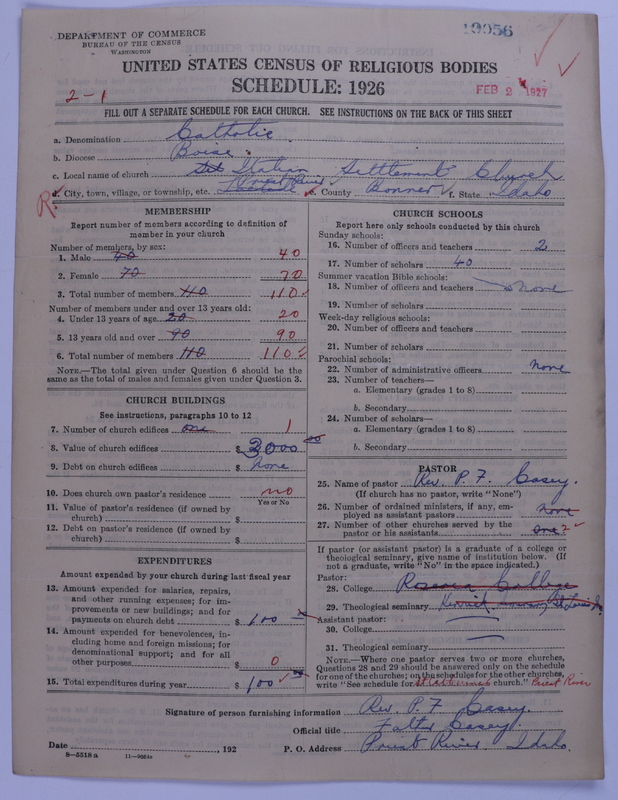 DEPARTMENT OF COMMERCE
BUREAU OF THE CENSUS
WASHINGTON
19056
UNITED STATES CENSUS OF RELIGIOUS BODIES
SCHEDULE: 1926
2-1
FEB 2 1927
FILL OUT A SEPARATE SCHEDULE FOR EACH CHURCH. SEE INSTRUCTIONS ON THE BACK OF THIS SHEET
a. Denomination Catholic
b. Diocese Boise
c. Local name of church Station Settlement Church
d. City, town, village, or township, etc. e. County Bonner f. State Idaho
R.
MEMBERSHIP
Report number of members according to definition of member in your church
Number of members, by sex:
1. Male 40 40
2. Female 70 70
3. Total number of members 110 110
Number of members under and over 13 years old:
4. Under 13 years of age 20 20
5. 13 years old and over 90 90
6. Total number of members 110 110
NOTE.—The total given under Question 6 should be
same as the total of males and females given under Question 3.
CHURCH BUILDINGS
See instructions, paragraphs 10 to 12
7. Number of church edifices one 1
8. Value of church edifices $ 3000 00
9. Debt on church edifices $ None
10. Does church own pastor's residence no
Yes or No
11. Value of pastor's residence (if owned by
church) $
12. Debt on pastor's residence (if owned by
church) $
EXPENDITURES
Amount expended by your church during last fiscal year
13. Amount expended for salaries, repairs,
and other running expenses; for im-
provements or new buildings; and for
payments on church debt $ 100
14. Amount expended for benevolences, in-
cluding home and foreign missions; for
denominational support; and for all
other purposes $ 0
15. Total expenditures during year $ 100
CHURCH SCHOOLS
Report here only schools conducted by this church
Sunday schools:
16. Number of officers and teachers 2
17. Number of scholars 40
Summer vacation Bible schools:
18. Number of officers and teachers none
19. Number of scholars
Week-day religious schools:
20. Number of officers and teachers
21. Number of scholars
Parochial schools:
22. Number of administrative officers none
23. Number of teachers—
a. Elementary (grades 1 to 8)
b. Secondary
24. Number of scholars—
a. Elementary (grades 1 to 8)
b. Secondary
PASTOR
25. Name of pastor Rev. P. F. Casey.
(If church has no pastor, write "None")
26. Number of ordained ministers, if any, em-
ployed as assistant pastors none
27. Number of other churches served by the
pastor or his assistants one 2
If pastor (or assistant pastor) is a graduate of a college or
theological seminary, give name of institution below. (If
not a graduate, write "No" in the space indicated.)
Pastor:
28. College College
29. Theological seminary Kenrick St Louis
Assistant pastor:
30. College
31. Theological seminary
NOTE.—Where one pastor serves two or more churches,
Questions 28 and 29 should be answered only on the schedule
for one of the churches; on the schedules for the other churches,
write "See schedule for church." Priest River
Signature of person furnishing information Rev. P. F. Casey.
Official title Father Casey.
Date , 192 P. O. Address Priest River Idaho.
8-5518 a